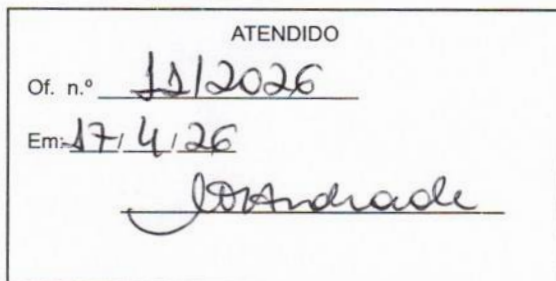 ATENDIDO
Of. n.º 11/2026
Em: 17/4/26
Andrade